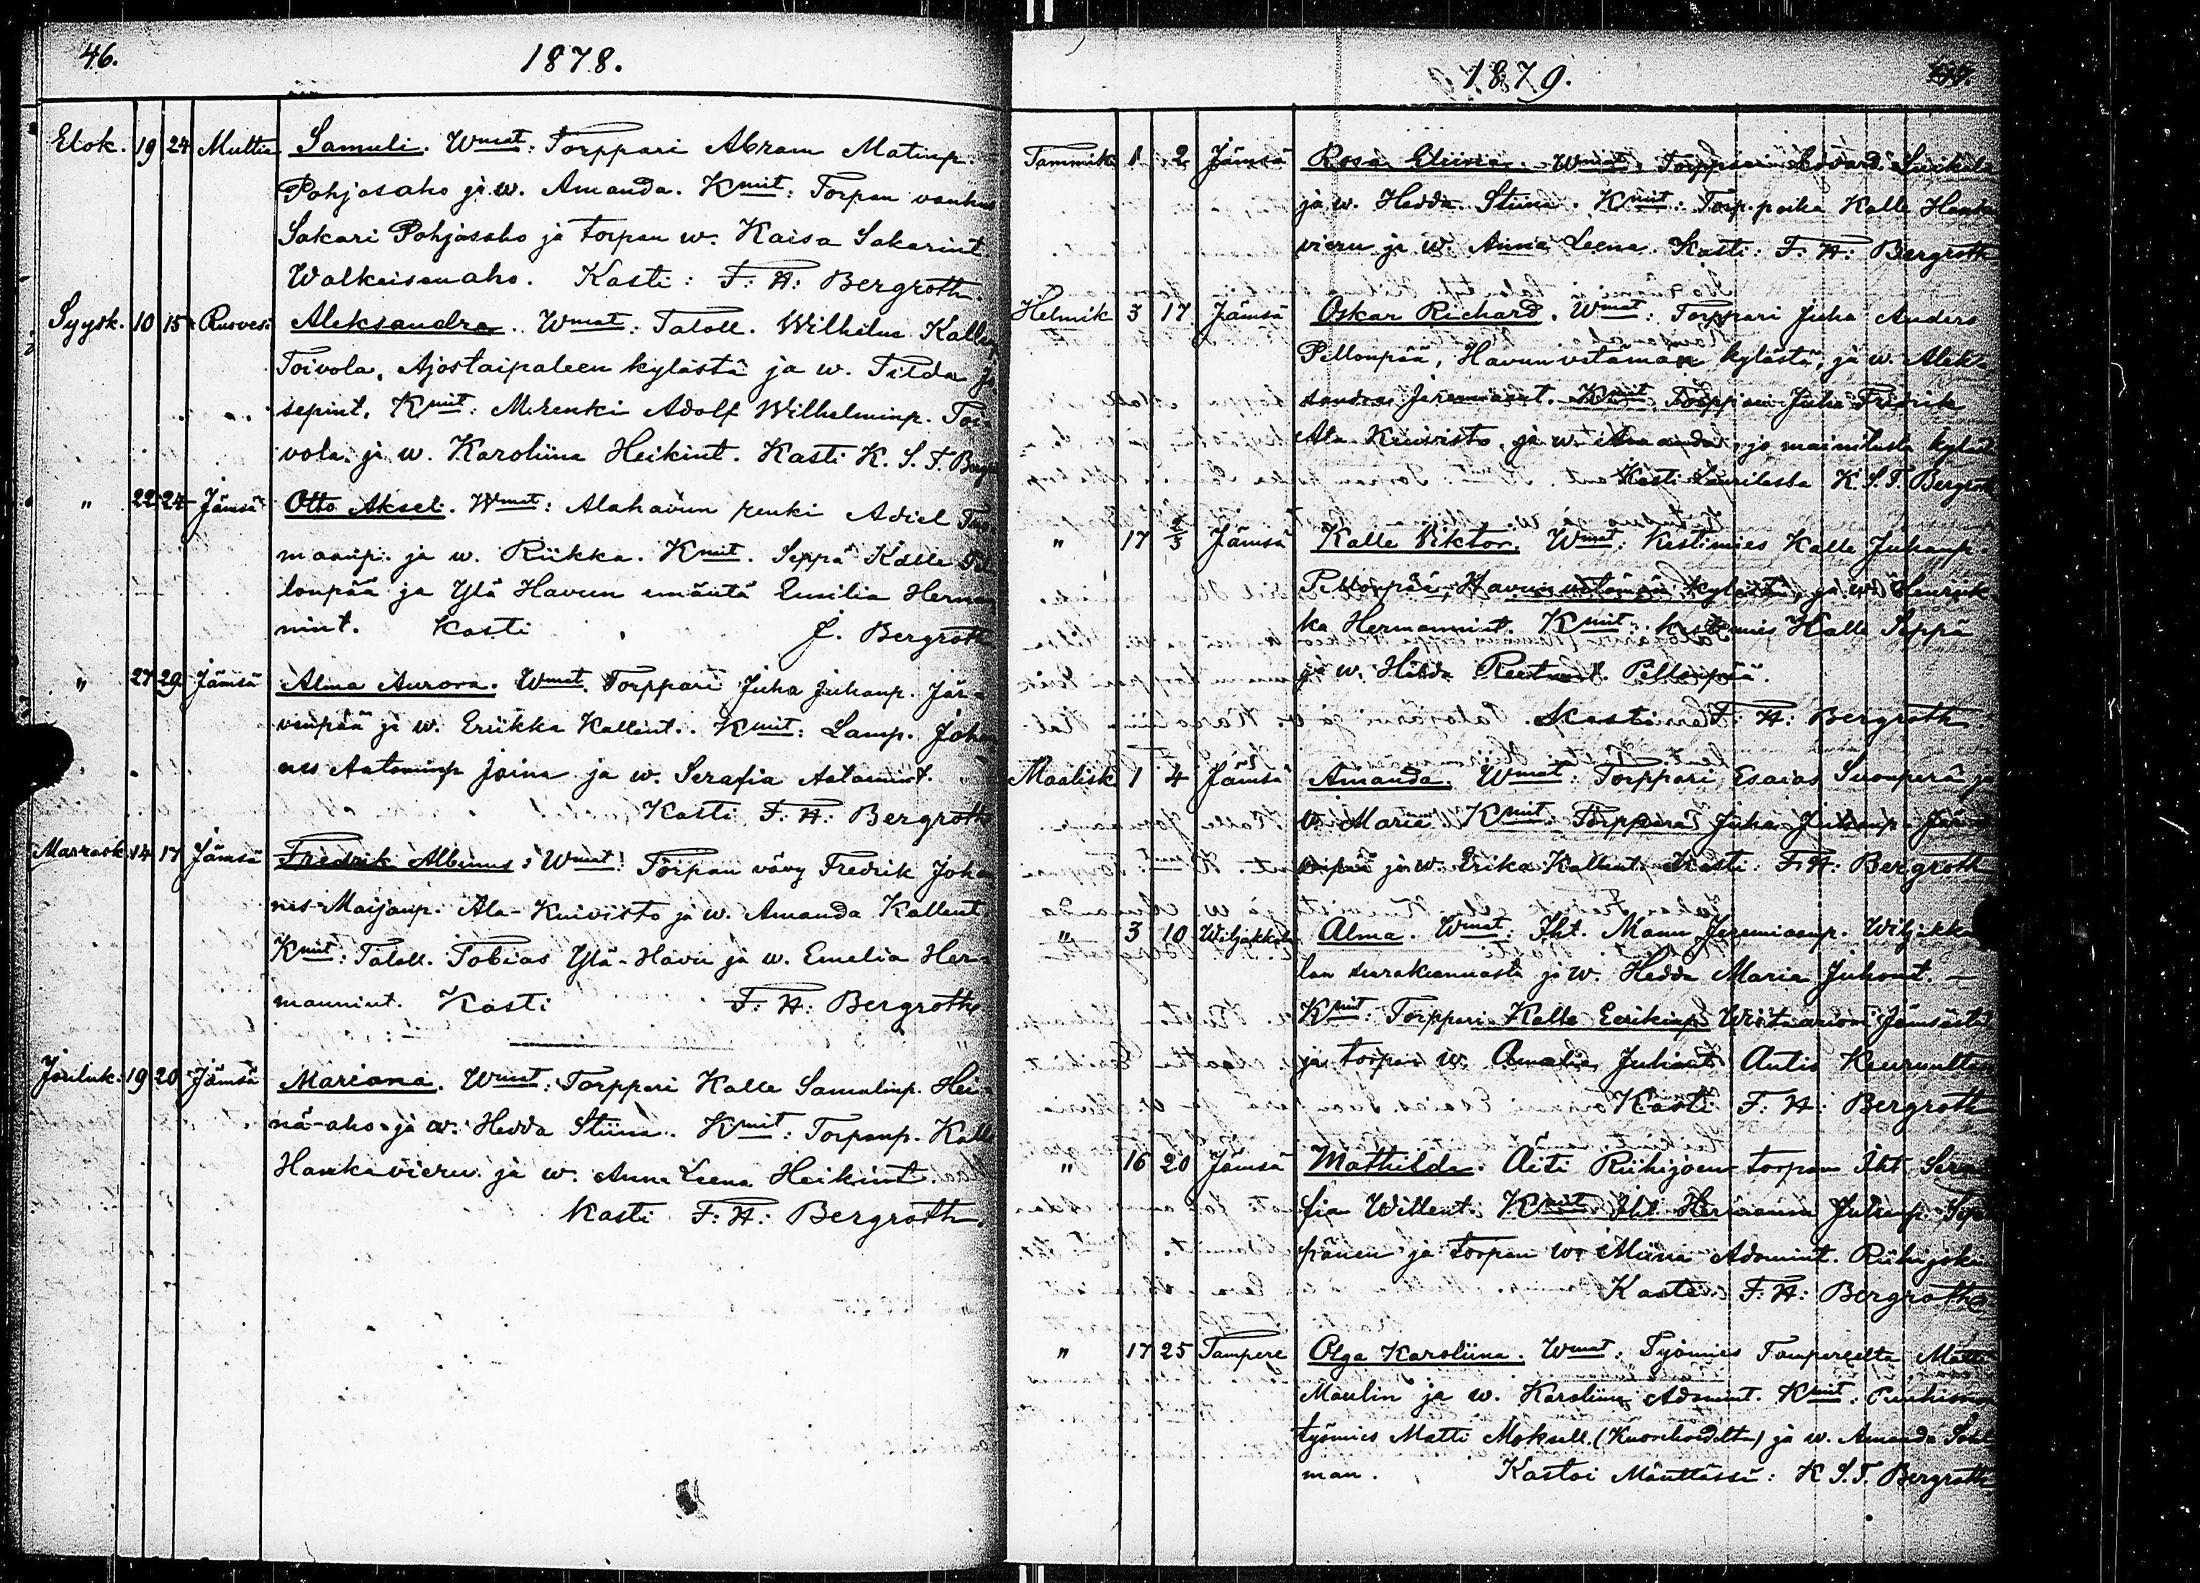 46.
1878.
Elok. 19 24 Multia Samuli. Wmat: Torppari Abram Matinp.
Pohjosaho ja w. Amanda. Kmit: Torpan vanhus
Sakari Pohjosaho ja torpan w. Kaisa Sakarint.
Walkeisenaho. Kasti: F. H: Bergroth.
Syysk. 10 15 Ruovesi Aleksandra. Wmat: Taloll. Wilhelm Kallenp.
Toivola, Ajostaipaleen kylästä ja w. Tilda Jo
sepint. Kmit: M.renki Adolf Wilhelminp. Toi-
vola ja w. Karoliina Heikint. Kasti K. S. F. Bergr
" 22 24 Jämsä Otto Aksel. Wmat: Alahavun renki Adiel Tuo
maanp. ja w. Riikka. Kmit. Seppä Kalle Pel
lonpää ja Ylä Havun emäntä Emilia Herman
nint. Kasti F. Bergroth
" 27 29 Jämsä Alma Aurora. Wmat. Torppari Juha Juhanp. Jär-
vinpää ja w. Eriikka Kallent. Kmit: Lamp. Johan
nes Aataminp Joina ja w. Serafia Aatamint.
Kasti F: H: Bergroth
Marrask. 14 17 Jämsä Fredrik Albinus: Wmat: Torpan vävy Fredrik Johan
nes Maijanp. Ala-Kuivisto ja w. Amanda Kallent
Kmit: Taloll. Tobias Ylä-Havu ja w. Emelia Her-
mannint. Kasti F: H: Bergroth
Jouluk. 19 20 Jämsä Mariana. Wmat: Torppari Kalle Samulinp. Hei-
nä-aho ja w. Hedda Stiina. Kmit: Torpanp. Kalle
Hankavieru ja w. Anna Leena Heikint.
Kasti F: H: Bergroth.
1879.
Tammik 1 2 Jämsä Rosa Eliina. Wmat: Torppari Edvard
ja w. Hedda Stiina. Kmit: Torp. poika Kalle Hanka
vieru ja w. Anna Leena. Kasti: F: H: Bergroth
Helmik 3 17 Jämsä Oskar Richard. Wmat: Torppari Juha Anders
Pellonpää, Havunvetämän kylästä, ja w. Alek-
sandra Jeremiaant. Kmit Torppari Juha Fredrik
Ala Kuivisto ja w. Amanda, jo mainitusta kylästä
Kasti Laurilassa K. S. F. Bergroth
" 17 2/3 Jämsä Kalle Viktor. Wmat: Kestimies Kalle Juhanp.
Pellonpää, Havunvetämän kylästä, ja w. Henriik
ka Hermannint. Kmit: Kestimies Kalle Seppä
ja w. Hilda Pellonpää.
Kasti F: H: Bergroth
Maalisk 1 4 Jämsä Amanda. Wmat: Torppari Esaias Suonperä ja
w. Maria Kmit: Torppari Juha Juhanp. Jär
vinpää ja w. Erika Kallent. Kasti: F: H: Bergroth
" 3 10 Wiljakkala Alma. Wmat: Iht. Manu Jeremiaanp. Wiljakka
lan seurakunnasta ja w. Hedda Maria Juhont. —
Kmit: Torppari Kalle Eerikinp Jämsästä
ja torpan w. Amalia Juhant
Kasti F: H: Bergroth
" 16 20 Jämsä Mathilda. Äiti Riihijoen torpan Iht Sera
fia Willent. Kmit Iht Hermanni Juhanp. Sep
pänen ja torpan w. Miina Adamint. Riihijoki
Kasti F: H: Bergroth
" 17 25 Tampere Olga Karoliina. Wmat: Työmies Tampereelta Matti
Maulin ja w. Karoliina Adamint. Kmit:
työmies Matti Moksell (Kuorehvedelta) ja w. Amanda
man. Kastoi Mänttässä: K S. F. Bergroth